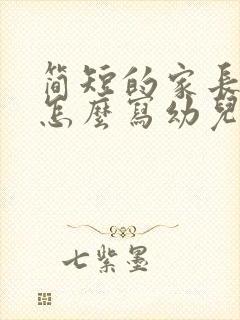 简短的家長
怎麼寫幼兒
七紫墨